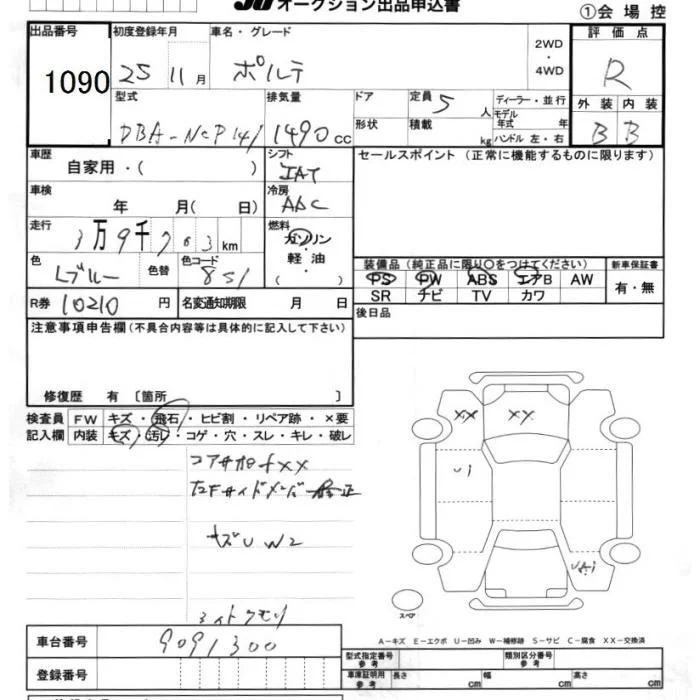 オークション出品申込書
①会場控
出品番号 初度登録年月 車名・グレード 2WD・4WD 評価点
1090 25 11月 ポルテ R
型式 排気量 ドア 定員 5人 ディーラー・並行 外装 内装
DBA-NCP141 1490cc 形状 積載 kg モデル年式 年 B B
ハンドル 左・右
車歴 シフト セールスポイント(正常に機能するものに限ります)
自家用・( ) IAT
車検 冷房
年 月( 日) AAC
走行 燃料
3万9千703km ガソリン
軽油
( )
色 色替 色コード 装備品(純正品に限り〇をつけてください) 新車保証書
Lブルー 851 PS PW ABS エアB AW 有・無
SR ナビ TV カワ
R券 10210円 名変通知期限 月 日 後日品
注意事項申告欄(不具合内容等は具体的に記入して下さい)
修復歴 有 〔箇所 〕
検査員 FW キズ・飛石・ヒビ割・リペア跡・×要
記入欄 内装 キズ・汚レ・コゲ・穴・スレ・キレ・破レ
XX XX
コアサポートXX
左Fサイドメンバー修正
U1
キズU W2
UA1
スペア
ライトクモリ
A-キズ E-エクボ U-凹み W-補修跡 S-サビ C-腐食 XX-交換済
車台番号 9091300
型式指定番号 参考 類別区分番号 参考
登録番号 車庫証明用 参考 長さ cm 幅 cm 高さ cm